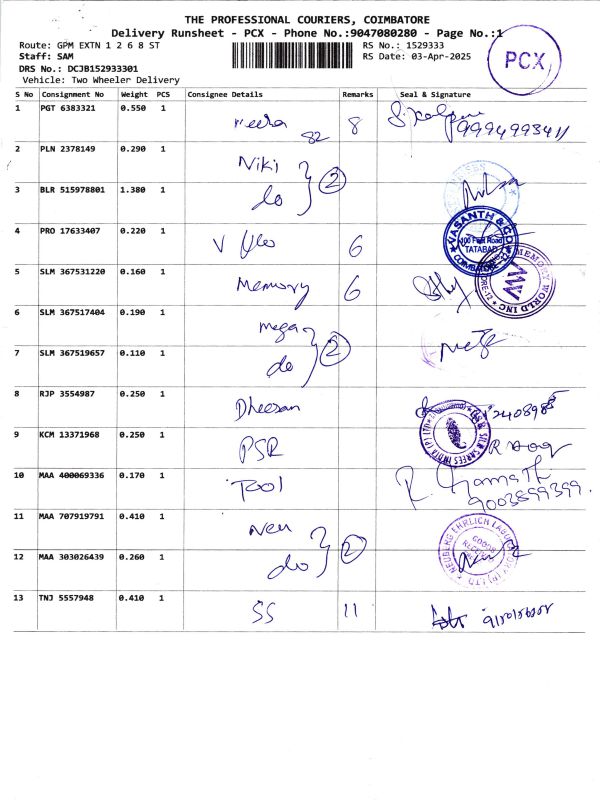 THE PROFESSIONAL COURIERS, COIMBATORE
Delivery Runsheet - PCX - Phone No.:9047080280 - Page No.:1
Route: GPM EXTN 1 2 6 8 ST
RS No.: 1529333
Staff: SAM
RS Date: 03-Apr-2025
PCX
DRS No.: DCJB152933301
Vehicle: Two Wheeler Delivery
S No Consignment No Weight PCS Consignee Details Remarks Seal & Signature
1 PGT 6383321 0.550 1 8
82 9994993411
2 PLN 2378149 0.290 1 Niki
2
3 BLR 515978801 1.380 1 do
VASANTH & CO
100 Feet Road
TATABAD
COIMBATORE
4 PRO 17633407 0.220 1 V 6
5 SLM 367531220 0.160 1 Memory 6
MEMORY WORLD INC
6 SLM 367517404 0.190 1 Mega
2
7 SLM 367519657 0.110 1 do
8 RJP 3554987 0.250 1 Dheeran
9 KCM 13371968 0.250 1 PSR
PSR SILK SAREES INDIA (P) LTD
10 MAA 400069336 0.170 1 Tool
9003899399.
11 MAA 707919791 0.410 1 Neu
2
NEUBERG EHRLICH LABORATORY (P) LTD
GOODS
12 MAA 303026439 0.260 1 do
13 TNJ 5557948 0.410 1 SS 11